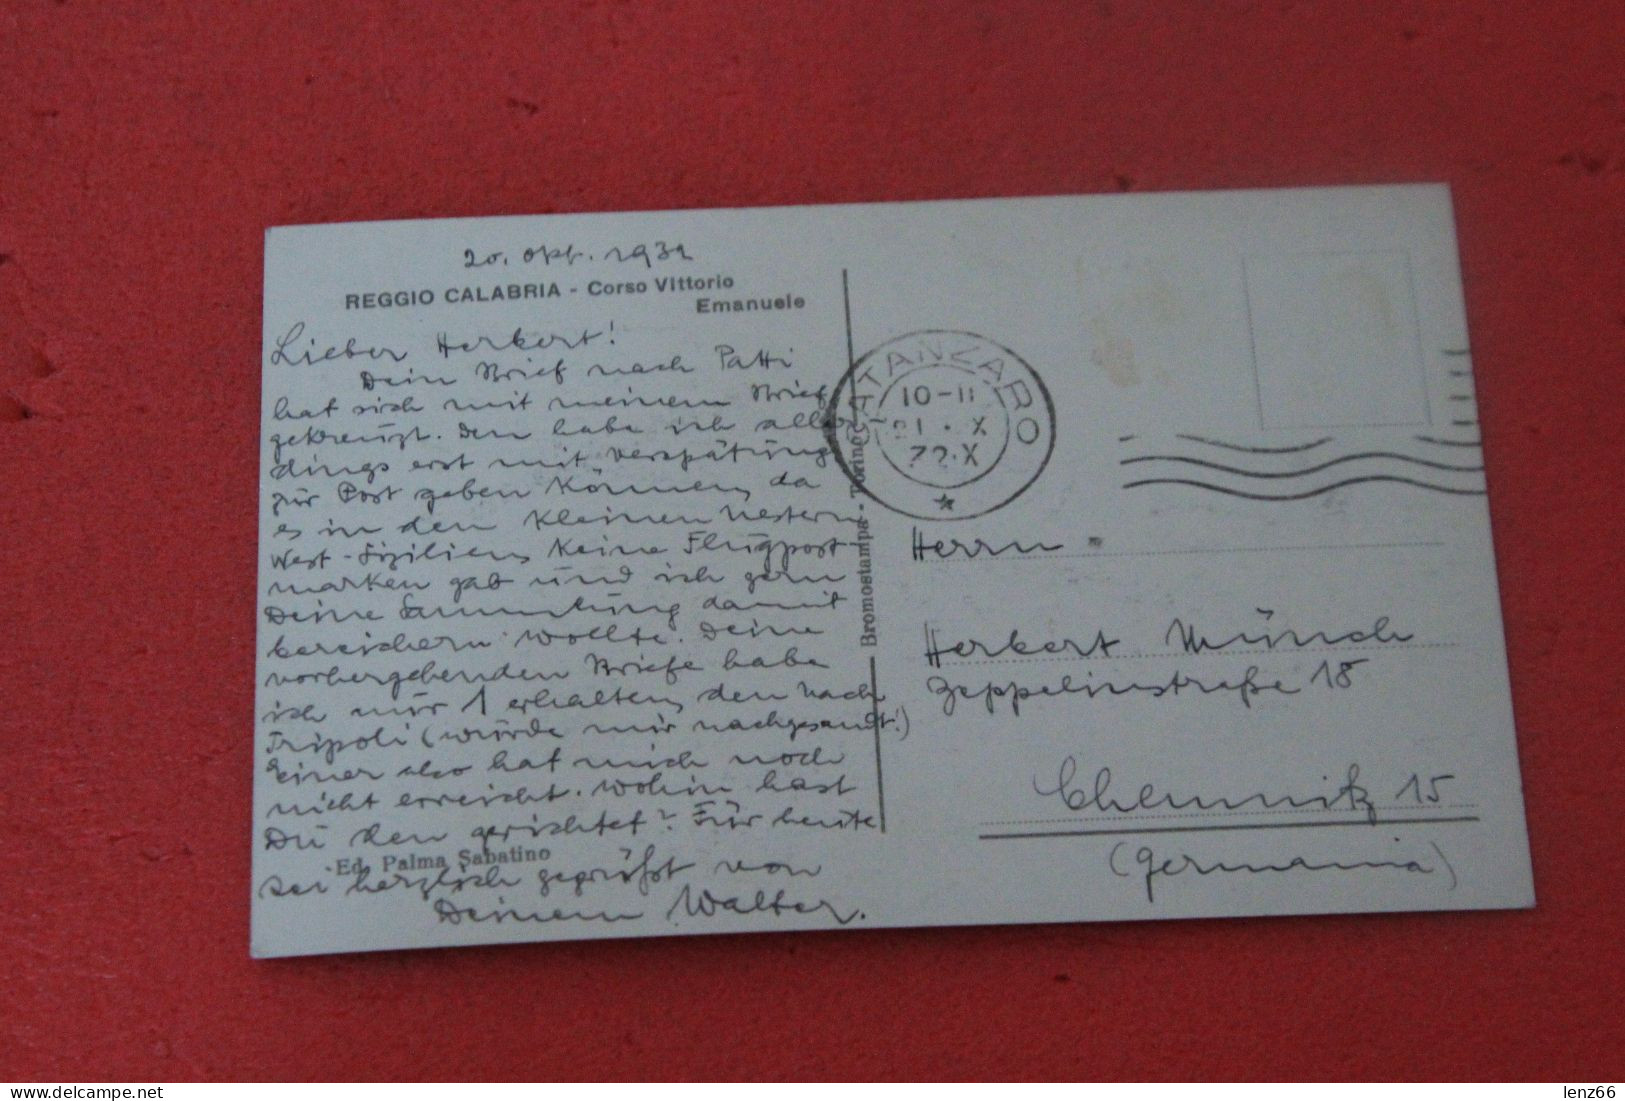 20. Okt. 1932
REGGIO CALABRIA - Corso Vittorio
Emanuele
Lieber Herbert!
Dein Brief nach Patti
hat sich mit meinem Brief
gekreuzt. Den habe ich aller
dings erst mit Verspätung
zur Post geben können, da
es in den kleinen Nestern
West-Siziliens keine Flugpost-
marken gab und ich gern
Deine Sammlung damit
bereichern wollte. Deine
vorhergehenden Briefe habe
ich nur 1 erhalten, den nach
Tripoli (wurde mir nachgesandt!)
Einer also hat mich noch
nicht erreicht. Wohin hast
Du den gerichtet? Für heute
Ed. Palma Sabatino
sei herzlich gegrüßt von
Deinem Walter.
Bromostampa - Torino
CATANZARO
10-11
21 · X
32·X
Herrn
Herbert Münch
Zeppelinstraße 18
Chemnitz 15
(Germania)
lenz66
www.delcampe.net